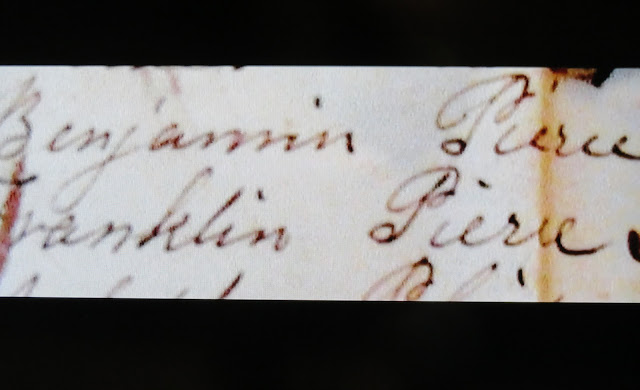 Benjamin Pierce
Franklin Pierce